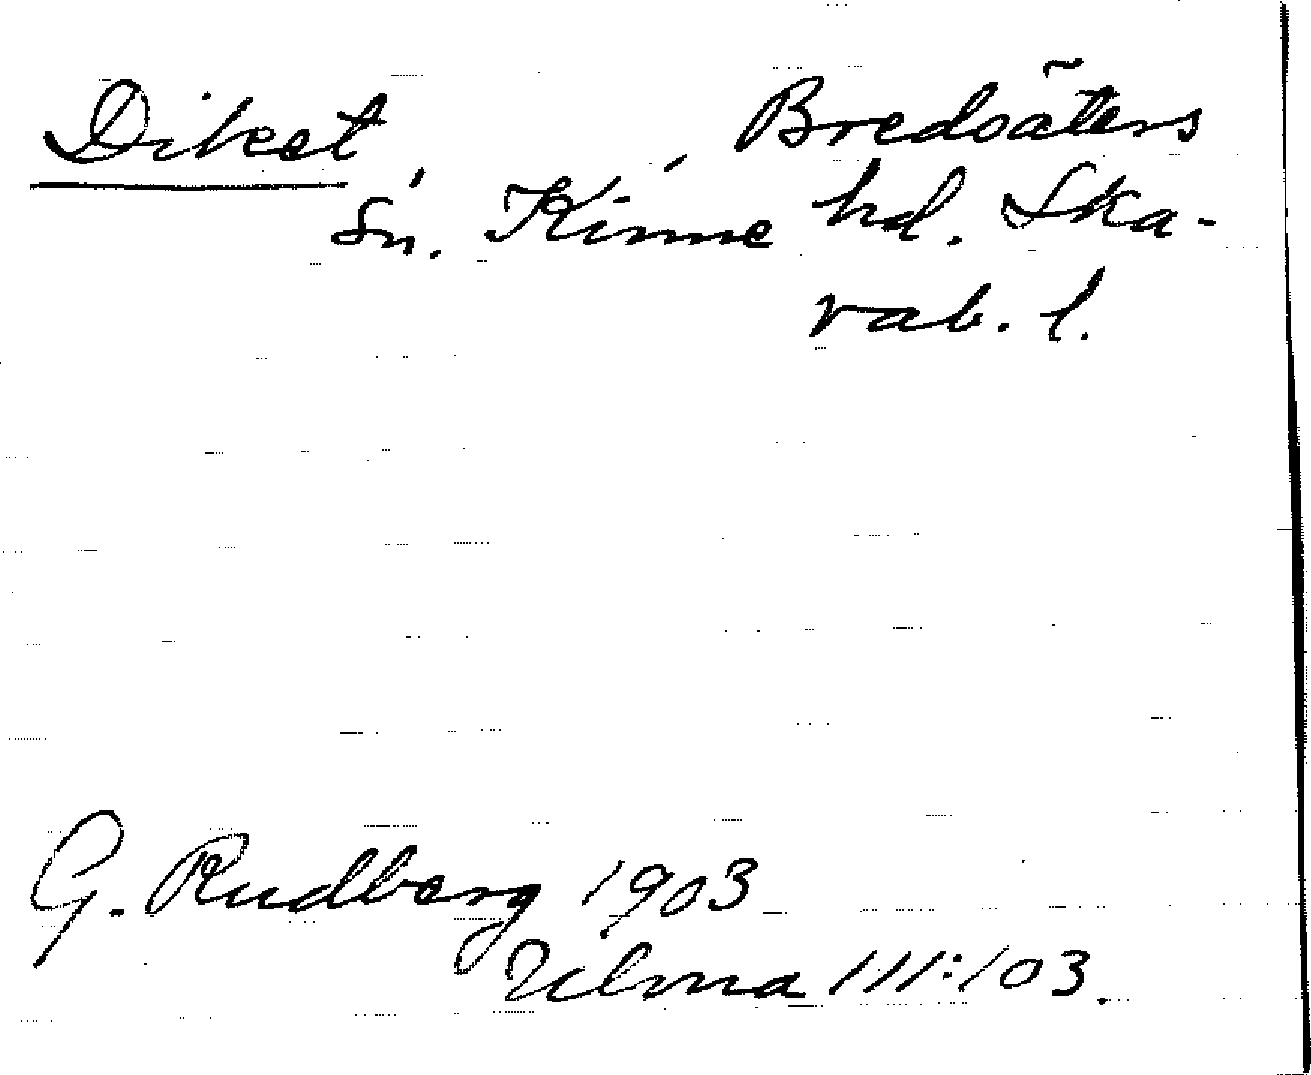 Diket, , Bredsäters
sn. Kinne hd. Ska-
rab. l.
G. Rudberg 1903
Ulma 111:103.